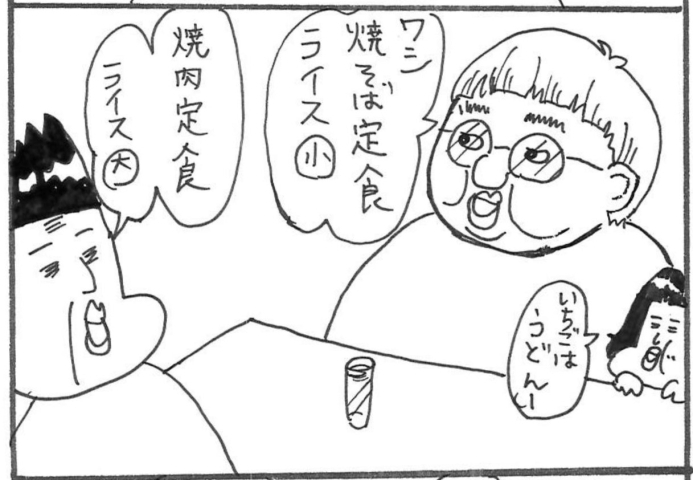 ワシ
焼そば定食
ライス㊙小
焼肉定食
ライス大
いちごは
うどんー